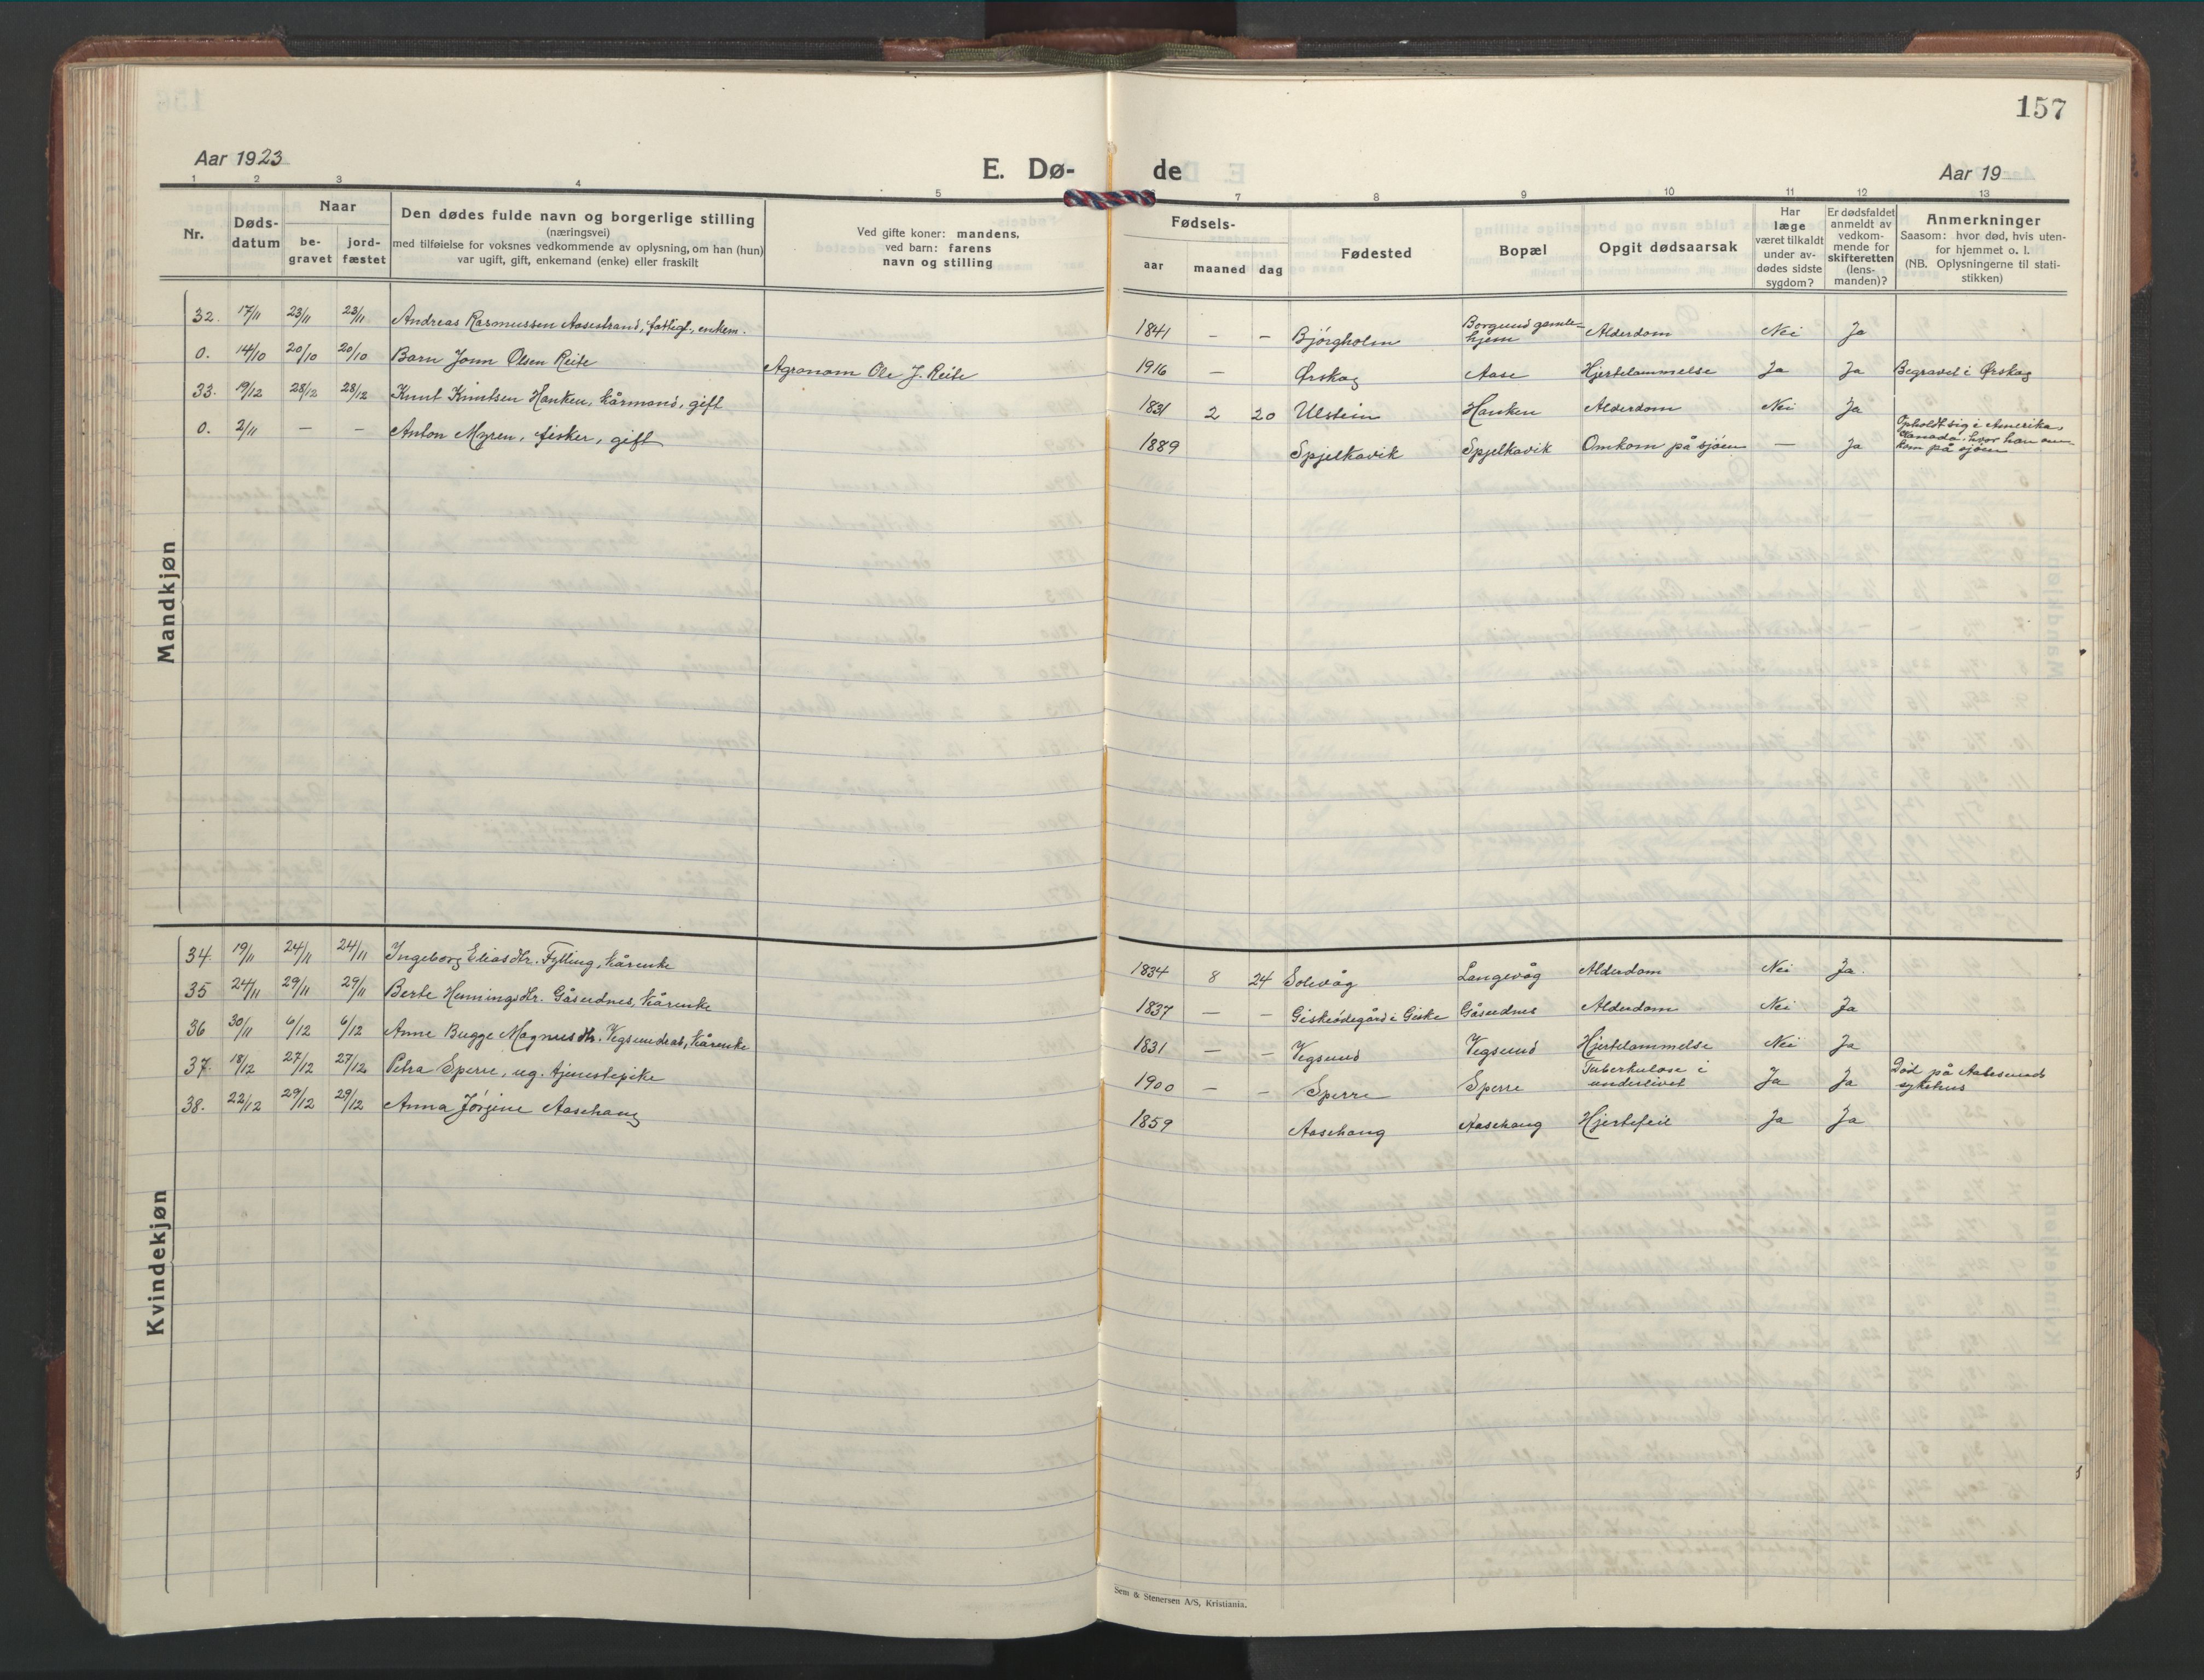 157
Aar 1923
E. Dø-
de
Aar 19
1 2 3 4 5 7 8 9 10 11 12 13
Nr.
Døds-
datum
Naar
be-
gravet
jord-
fæstet
Den dødes fulde navn og borgerlige stilling
(næringsvei)
med tilføielse for voksnes vedkommende av oplysning, om han (hun)
var ugift, gift, enkemand (enke) eller fraskilt
Ved gifte koner: mandens,
ved barn: farens
navn og stilling
Fødsels-
aar maaned dag
Fødested
Bopæl
Opgit dødsaarsak
Har
læge
været tilkaldt
under av-
dødes sidste
sygdom?
Er dødsfaldet
anmeldt av
vedkom-
mende for
skifteretten
(lens-
manden)?
Anmerkninger
Saasom: hvor død, hvis uten-
for hjemmet o. l.
(NB. Oplysningerne til stati-
stikken)
Mandkjøn
32. 17/11 23/11 23/11 Andreas Rasmussen Aasestrand, fattigl., enkem. 1841 — — Bjørgholm Borgund gamle-
hjem Alderdom Nei Ja
0. 14/10 20/10 20/10 Barn Jonn Olsen Reite Agronom Ole J. Reite 1916 — Ørskog Aase Hjertelammelse Ja Ja Begravet i Ørskog
33. 19/12 28/12 28/12 Knut Knutsen Hanken, kårmand, gift 1831 2 20 Ulstein Hanken Alderdom Nei Ja
0. 2/11 — — Anton Myren, fisker, gift 1889 Spjelkavik Spjelkavik Omkom på sjøen — Ja Opholdt sig i Amerika,
Kanada, hvor han om-
kom på sjøen
Kvindekjøn
34. 19/11 24/11 24/11 Ingeborg Eliasdtr. Fylling, kårenke 1834 8 24 Solevåg Langevåg Alderdom Nei Ja.
35 24/11 29/11 29/11 Berte Henningsdtr. Gåseidnes, kårenke 1837 — — Giskeødegård i Giske Gåseidnes Alderdom Nei Ja
36 30/11 6/12 6/12 Anne Bugge Magnusdtr. Vegsundras, kårenke 1831 — — Vegsund Vegsund Hjertelammelse Nei Ja
37. 18/12 27/12 27/12 Petra Sperre, ug. tjenestepike 1900 — — Sperre Sperre Tuberkulose i
underlivet Ja Ja Død på Aalesunds
sykehus
38. 22/12 29/12 29/12 Anna Jørgine Aasehaug 1859 Aasehaug Aasehaug Hjertefeil Ja Ja
Sem & Stenersen A/S, Kristiania.